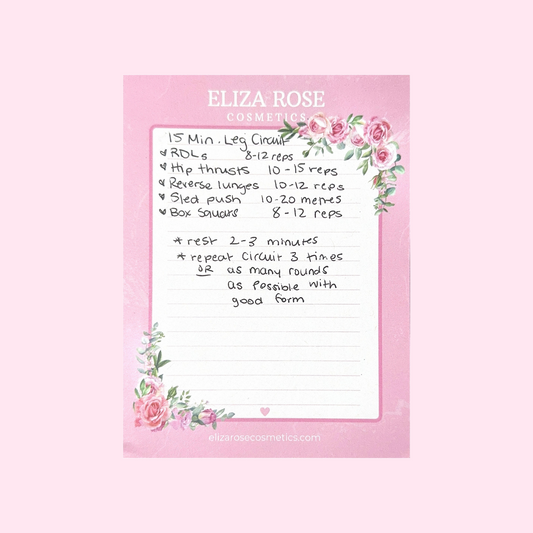 ELIZA ROSE
COSMETICS
15 Min. Leg Circuit
RDLs 8-12 reps
Hip thrusts 10-15 reps
Reverse lunges 10-12 reps
Sled push 10-20 metres
Box Squats 8-12 reps
* rest 2-3 minutes
* repeat Circuit 3 times
OR as many rounds
as possible with
good form
elizarosecosmetics.com